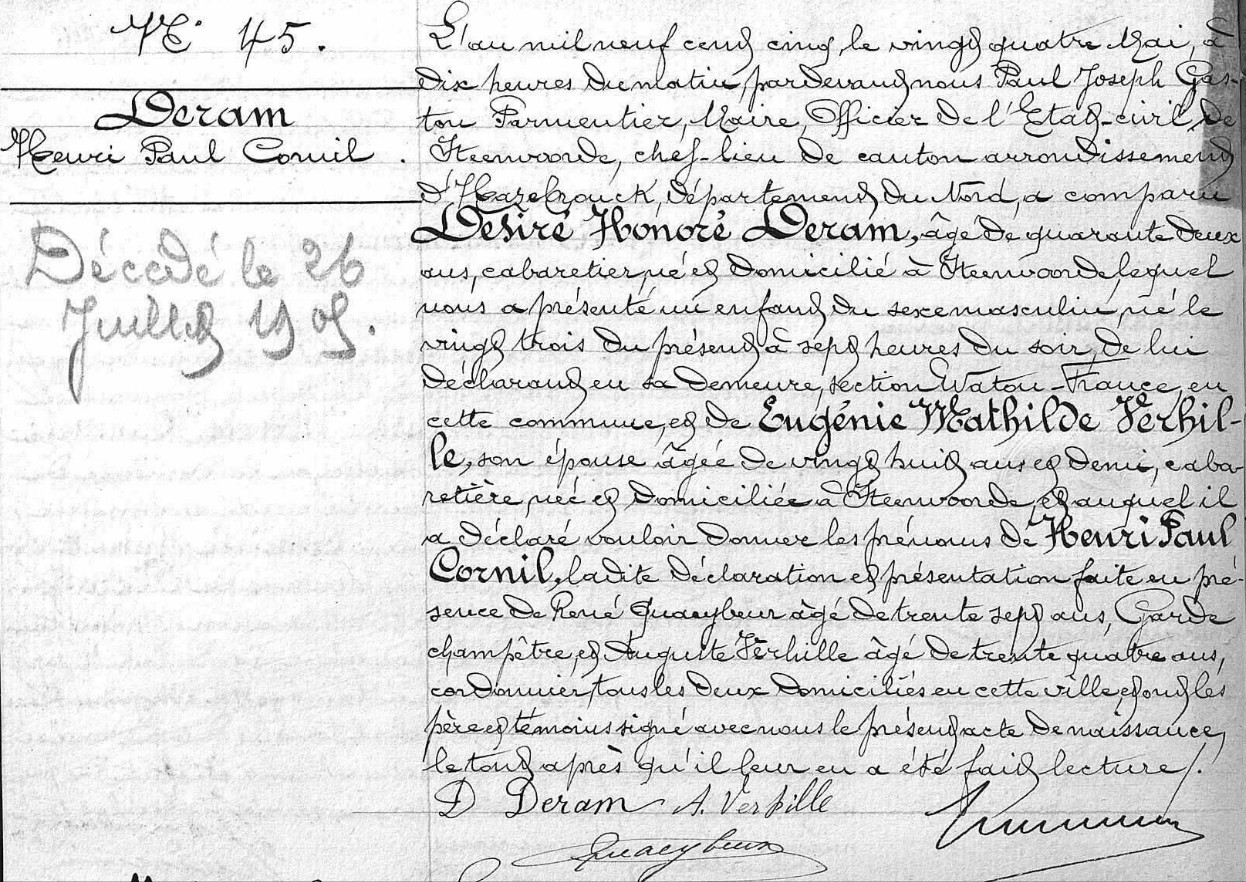 N° 45.
Deram
Henri Paul Cornil.
Décédé le 26
Juillet 1905.
L'an mil neuf cent cinq, le vingt quatre Mai, à
dix heures du matin, pardevant nous Paul Joseph Gas-
ton Parmentier, Maire, Officier de l'Etat-civil de
Steenvoorde, chef-lieu de canton arrondissement
d'Hazebrouck, département du Nord, a comparu
Désiré Honoré Deram, âgé de quarante deux
ans, cabaretier, né et domicilié à Steenvoorde, lequel
nous a présenté un enfant du sexe masculin, né le
vingt trois du présent à sept heures du soir, de lui
déclarant en sa demeure, section Watou-France, en
cette commune, et de Eugénie Mathilde Verhil-
le, son épouse âgée de vingt huit ans et demi, caba-
retière, née et domiciliée à Steenvoorde, et auquel il
a déclaré vouloir donner les prénoms de Henri Paul
Cornil, ladite déclaration et présentation faite en pré-
sence de René Quaeybeur âgé de trente sept ans, Garde
champêtre, et Auguste Verhille âgé de trente quatre ans,
cordonnier, tous les deux domiciliés en cette ville, et ont les
père et témoins signé avec nous le présent acte de naissance,
le tout après qu'il leur en a été fait lecture /.
D Deram A. Verhille
Quaeybeur